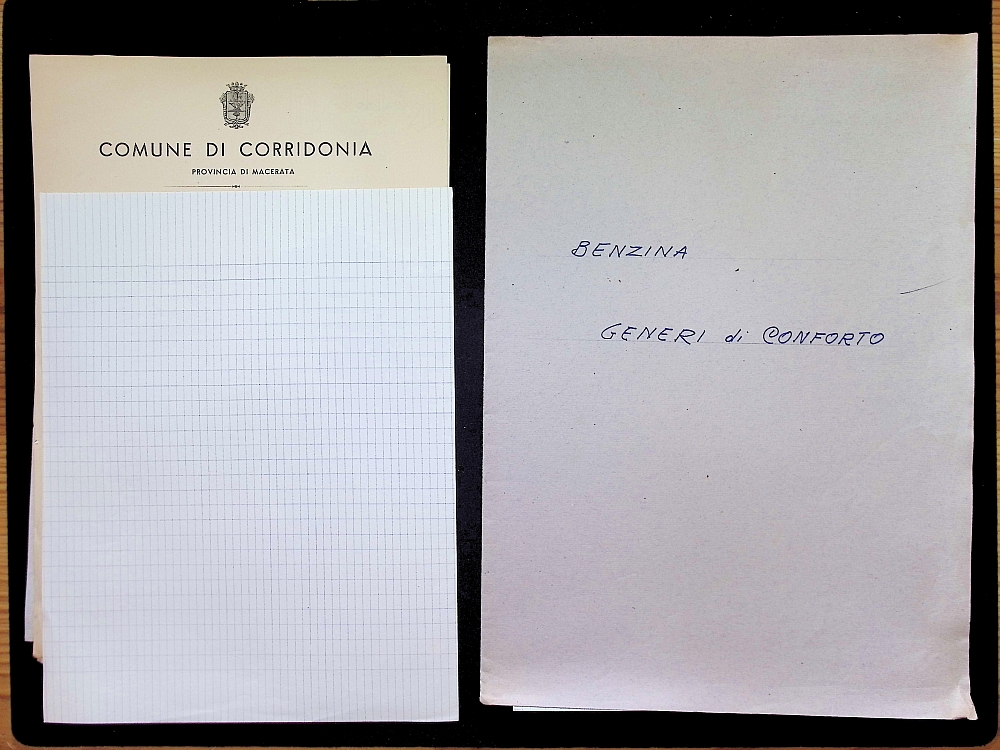 COMUNE DI CORRIDONIA
PROVINCIA DI MACERATA
BENZINA
GENERI di CONFORTO